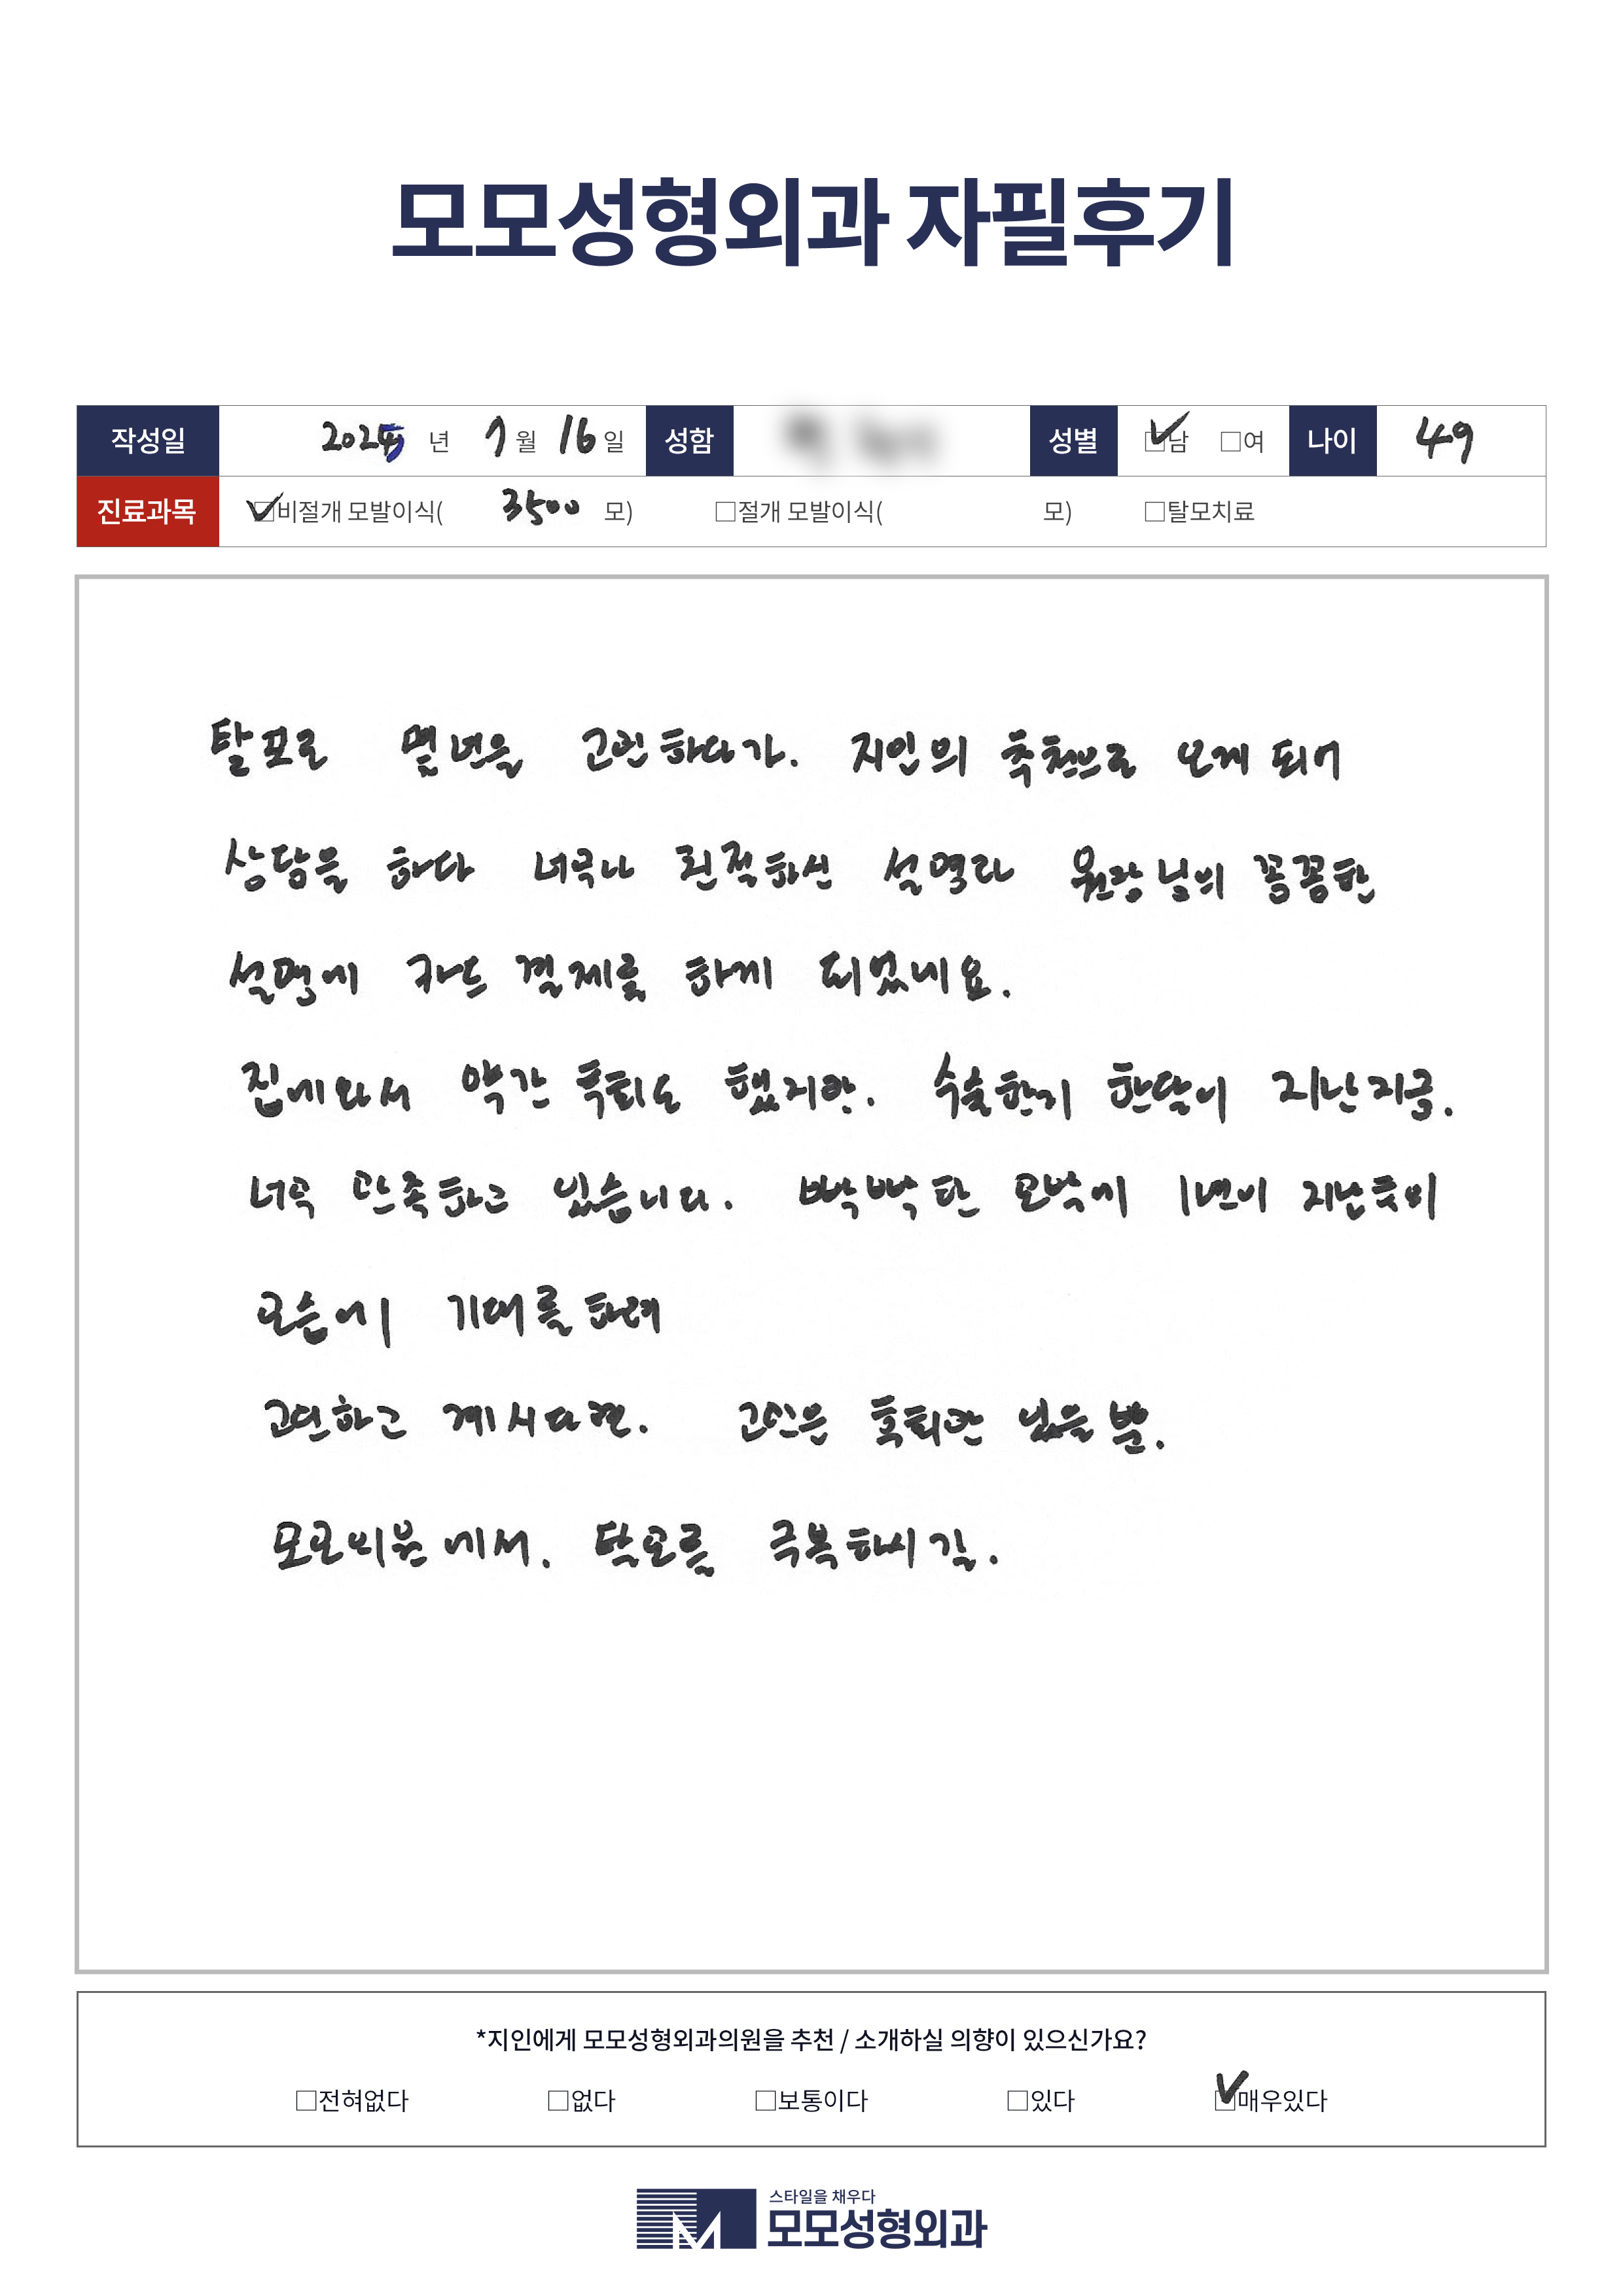 모모성형외과 자필후기
작성일 2025 년 7 월 16 일 성함 성별 ☑남 □여 나이 49
진료과목 ☑비절개 모발이식( 3500 모) □절개 모발이식( 모) □탈모치료
탈모로 몇년을 고민하다가. 지인의 추천으로 오게 되어
상담을 하다 너무나 친절하신 설명과 원장님의 꼼꼼한
설명에 카드 결제를 하게 되었네요.
집에와서 약간 후회도 했지만. 수술한지 한달이 지난지금.
너무 만족하고 있습니다. 빡빡한 모발에 1년이 지난후의
모습에 기대를 하며
고민하고 계시다면. 고민은 후회만 남을뿐.
모모의원에서. 탈모를 극복하시길.
*지인에게 모모성형외과의원을 추천 / 소개하실 의향이 있으신가요?
□전혀없다 □없다 □보통이다 □있다 ☑매우있다
스타일을 채우다
모모성형외과